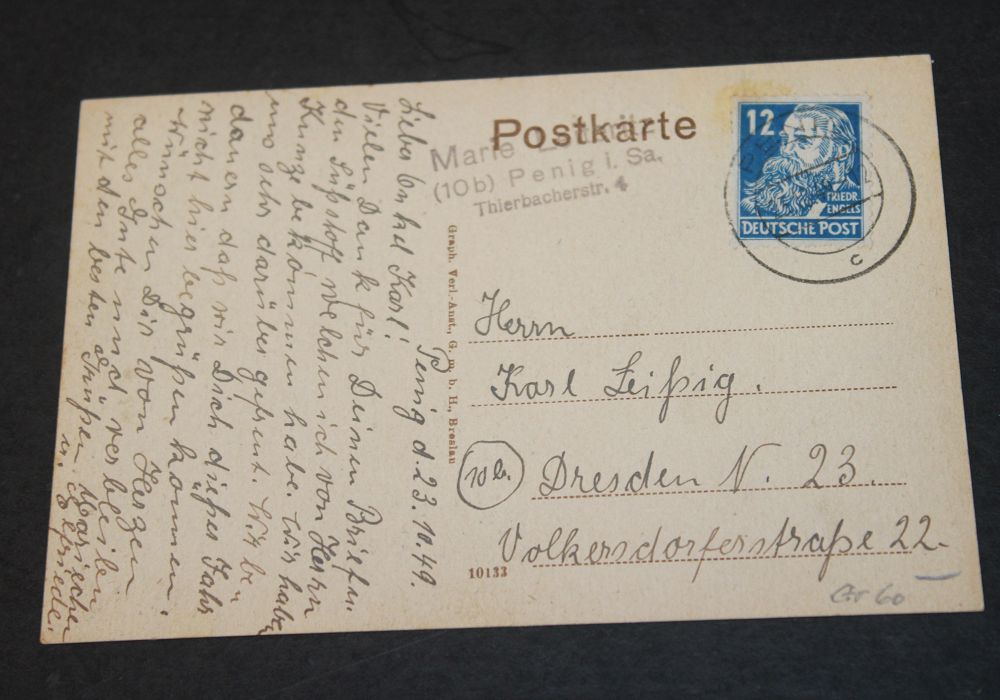 Penig d. 23.10.49.
Lieber Onkel Karl!
Vielen Dank für Deinen Brief u.
den Süßstoff welchen ich von Herrn
Kunze bekommen habe. Wir haben
uns sehr darüber gefreut. Wir be
dauern daß wir Dich dießes Jahr
nicht hier begrüßen können.
Wünschen Dir von Herzen
alles Gute und verbleiben
mit den besten Grüßen
u. Elfriede.
Postkarte
Marie
(10b) Penig i. Sa.
Thierbacherstr. 4
12
FRIEDR.
ENGELS
DEUTSCHE POST
c
Graph. Verl.-Anst., G. m. b. H., Breslau
Herrn
Karl Leißig.
10b. Dresden N. 23.
Volkersdorferstraße 22.
10133